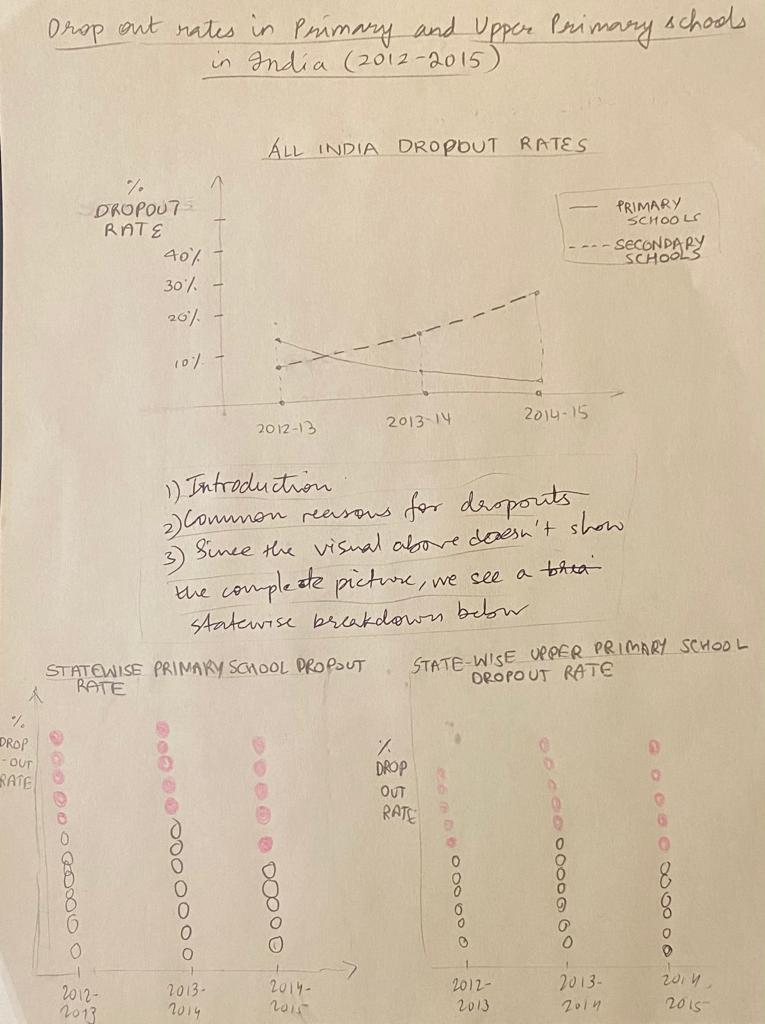 Drop out rates in Primary and Upper Primary schools
in India (2012-2015)
ALL INDIA DROPOUT RATES
%
DROPOUT
RATE
40%
30%
20%
10%
PRIMARY
SCHOOLS
SECONDARY
SCHOOLS
2012-13
2013-14
2014-15
1) Introduction
2) Common reasons for dropouts
3) Since the visual above doesn't show
the complete picture, we see a
statewise breakdown below
STATEWISE PRIMARY SCHOOL DROPOUT
RATE
%
DROP
-OUT
RATE
2012-
2013
2013-
2014
2014-
2015
STATE-WISE UPPER PRIMARY SCHOOL
DROPOUT RATE
%
DROP
OUT
RATE
2012-
2013
2013-
2014
2014
2015